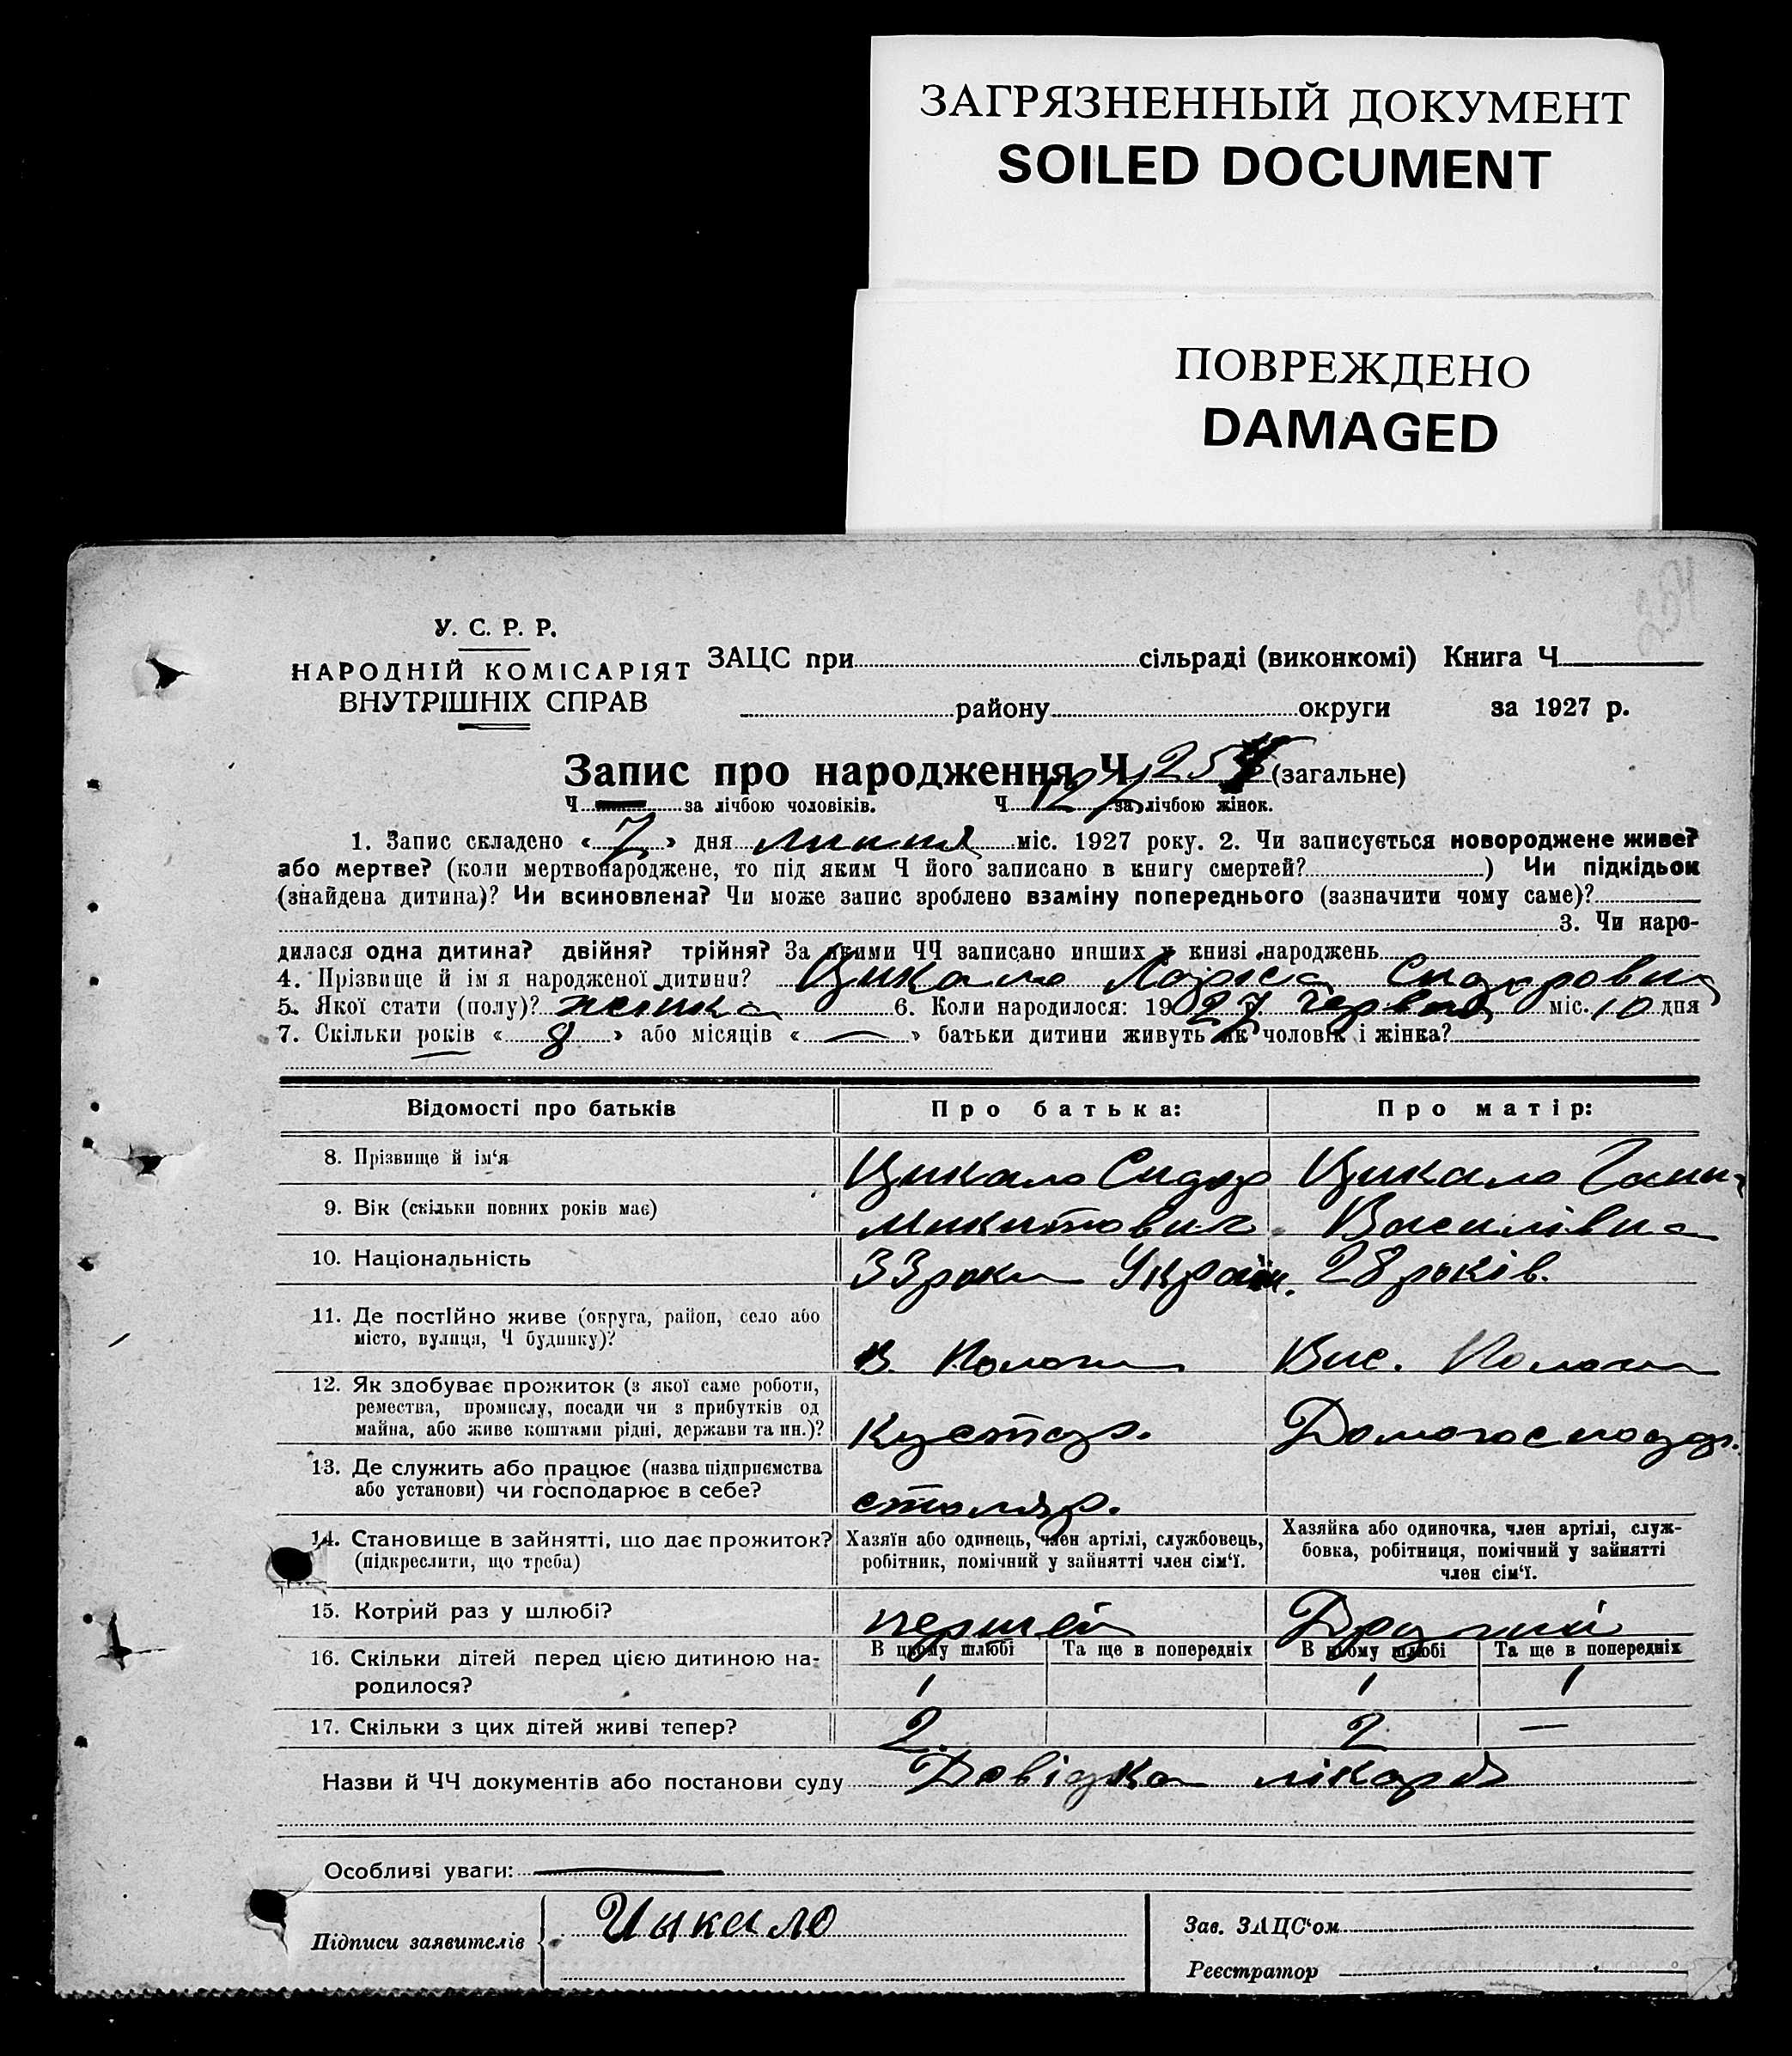 ЗАГРЯЗНЕННЫЙ ДОКУМЕНТ
SOILED DOCUMENT
ПОВРЕЖДЕНО
DAMAGED
У. С. Р. Р.
НАРОДНІЙ КОМІСАРІЯТ
ВНУТРІШНІХ СПРАВ
ЗАЦС при сільраді (виконкомі) Книга Ч
району округи за 1927 р.
Запис про народження Ч 254 (загальне)
Ч — за лічбою чоловіків. Ч 127 за лічбою жінок.
1. Запис складено « 7 » дня липня міс. 1927 року. 2. Чи записується новороджене живе?
або мертве? (коли мертвонароджене, то під яким Ч його записано в книгу смертей? ) Чи підкідьок
(знайдена дитина)? Чи всиновлена? Чи може запис зроблено взаміну попереднього (зазначити чому саме)?
3. Чи наро-
дилася одна дитина? двійня? трійня? За якими ЧЧ записано инших у книзі народжень
4. Прізвище й ім я народженої дитини? Цикало Сидоровна
5. Якої стати (полу)? жінка 6. Коли народилося: 1927 червня міс. 10 дня
7. Скільки років « 8 » або місяців « — » батьки дитини живуть як чоловік і жінка?
Відомості про батьків Про батька: Про матір:
8. Прізвище й ім‘я Цикало Сидор Цикало
9. Вік (скільки повних років має) Микитович Василівна
10. Національність 33 роки Украін. 28 років.
11. Де постійно живе (округа, район, село або
місто, вулиця, Ч будинку)? В. Пологи Вис. Пологи
12. Як здобуває прожиток (з якої саме роботи,
ремества, промислу, посади чи з прибутків од
майна, або живе коштами рідні, держави та ин.)? Кустар. Домогосподар.
13. Де служить або працює (назва підприємства
або установи) чи господарює в себе? столяр.
14. Становище в зайнятті, що дає прожиток? Хазяїн або одинець, член артілі, службовець, Хазяйка або одиночка, член артілі, служ-
(підкреслити, що треба) робітник, помічний у зайнятті член сім‘ї. бовка, робітниця, помічний у зайнятті
член сім‘ї.
15. Котрий раз у шлюбі? перший Другий
В цьому шлюбі Та ще в попередніх В цьому шлюбі Та ще в попередніх
16. Скільки дітей перед цією дитиною на-
родилося? 1 1 1
17. Скільки з цих дітей живі тепер? 2 2 —
Назви й ЧЧ документів або постанови суду Довідка лікаря
Особливі уваги: —
Підписи заявителів Цыкало
Зав. ЗАЦС‘ом
Реєстратор